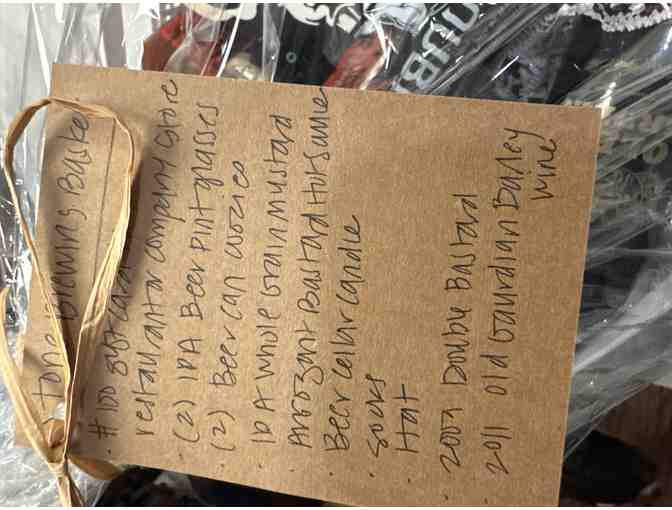 Stone Brewing Baske
· #100 gift card
restaurant or company store
· (2) IPA Beer pint glasses
· (2) Beer can coozies
· IPA whole Grain Mustard
· Arrogant Bastard Hot Sauce
· Beer cellar candle
· Socks
· Hat
· 2009 Double Bastard
· 2011 Old Gaurdian Barley
wine